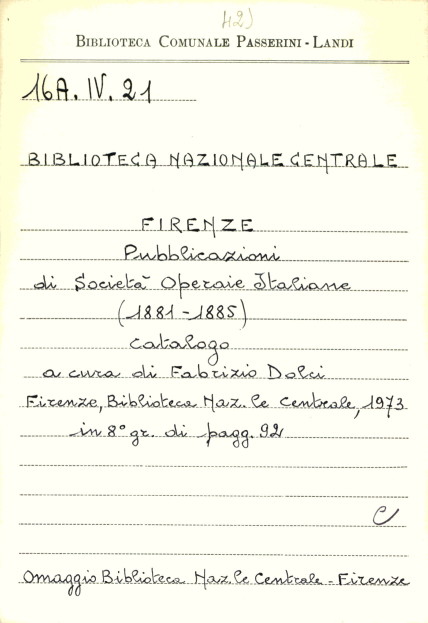 42)
BIBLIOTECA COMUNALE PASSERINI - LANDI
16A. IV. 21
BIBLIOTECA NAZIONALE CENTRALE
FIRENZE
Pubblicazioni
di Società Operaie Italiane
(1881 - 1885)
catalogo
a cura di Fabrizio Dolci
Firenze, Biblioteca Naz.le Centrale, 1973
in 8° gr. di pagg. 92
C
Omaggio Biblioteca Naz.le Centrale - Firenze